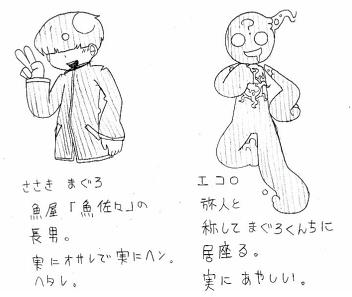 ささき まぐろ
魚屋「魚佐々」の
長男。
実にオサレで実にヘン。
ヘタレ。
エコロ
旅人と
称してまぐろくんちに
居座る。
実にあやしい。